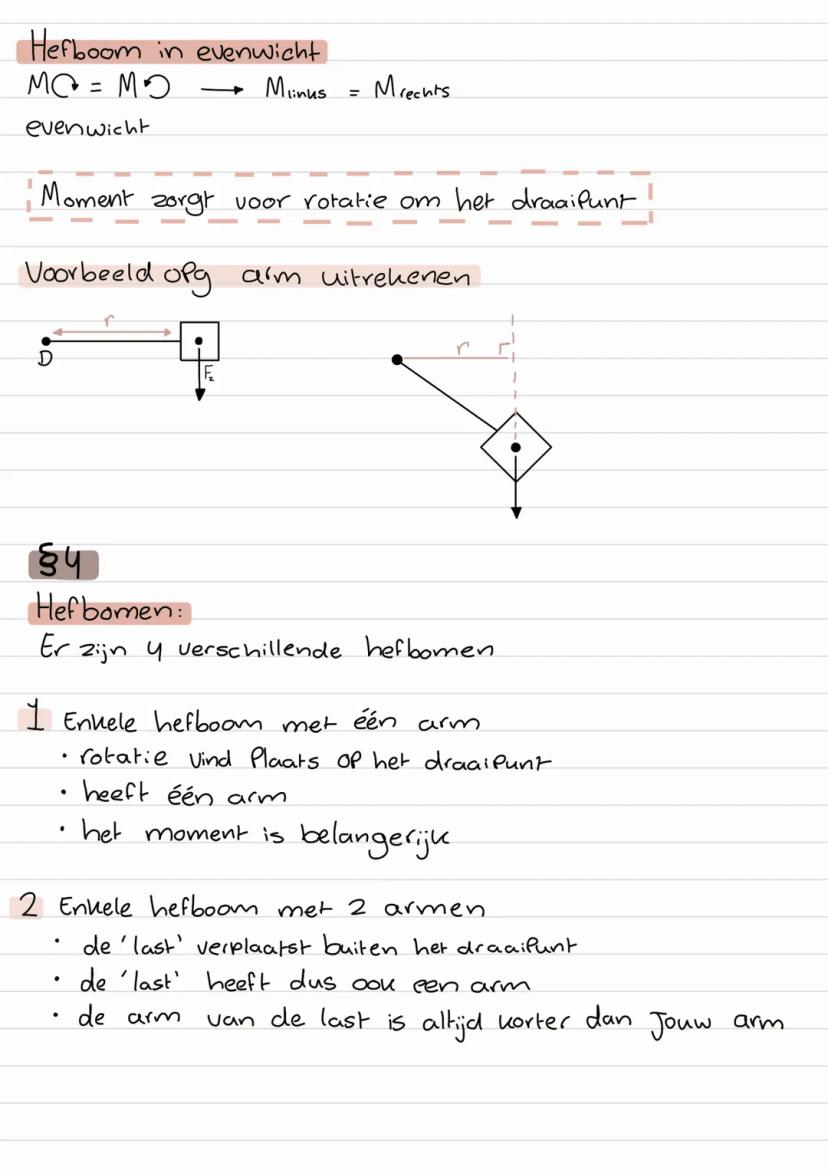 Hefboom in evenwicht
M↻ = M↺ → Mlinks = Mrechts
evenwicht
Moment zorgt voor rotatie om het draaipunt
Voorbeeld opg arm uitrekenen
r
D
Fz
r
§4
Hefbomen:
Er zijn 4 verschillende hefbomen
1 Enkele hefboom met één arm
• rotatie vind plaats op het draaipunt
• heeft één arm
• het moment is belangerijk
2 Enkele hefboom met 2 armen
• de 'last' verplaatst buiten het draaipunt
• de 'last' heeft dus ook een arm
• de arm van de last is altijd korter dan jouw arm